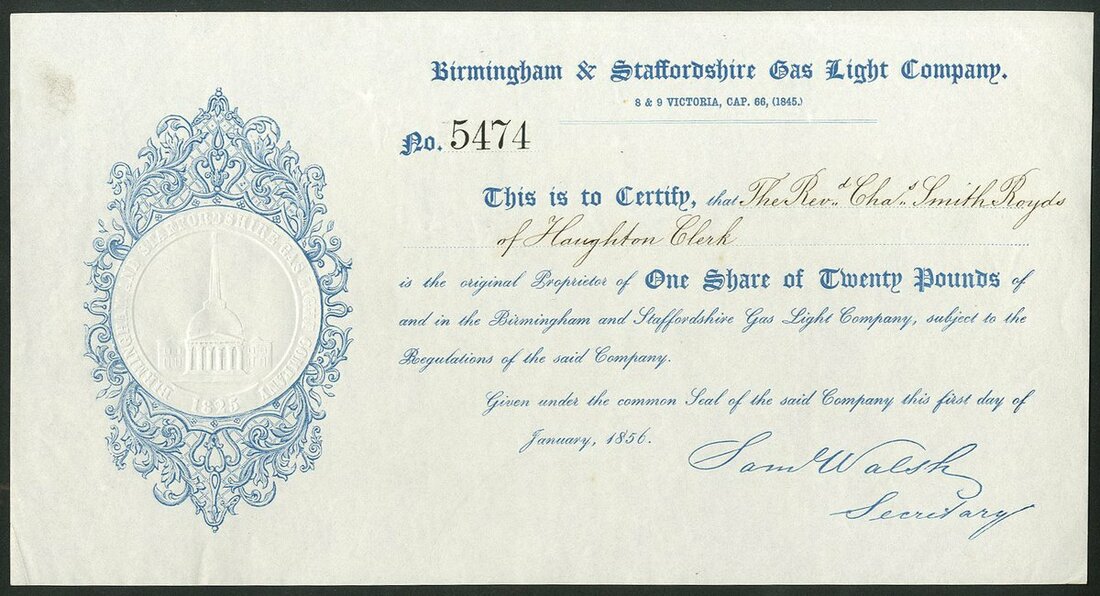 Birmingham & Staffordshire Gas Light Company.
8 & 9 VICTORIA, CAP. 66, (1845.)
No. 5474
This is to Certify, that The Revd. Chas. Smith Royds
of Haughton Clerk
is the original Proprietor of One Share of Twenty Pounds of
and in the Birmingham and Staffordshire Gas Light Company, subject to the
Regulations of the said Company.
Given under the common Seal of the said Company this first day of
January, 1856.
Saml Walsh
Secretary
BIRMINGHAM AND STAFFORDSHIRE GAS LIGHT COMPANY
1825